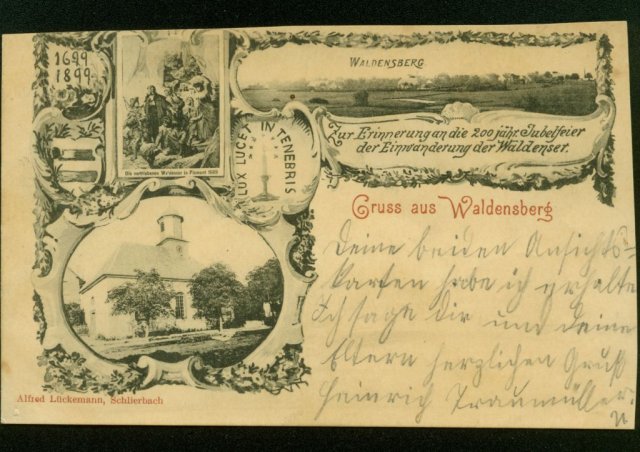 1699
1899
WALDENSBERG
Zur Erinnerung an die 200 jähr. Jubelfeier
der Einwanderung der Waldenser.
Die vertriebenen Waldenser in Piemont 1689
LUX LUCET IN TENEBRIS
Gruss aus Waldensberg
Deine beiden Ansichts-
karten habe ich erhalte
Ich sage dir und deine
Eltern herzlichen Gruß
Heinrich Traumüller
Alfred Lückemann, Schlierbach